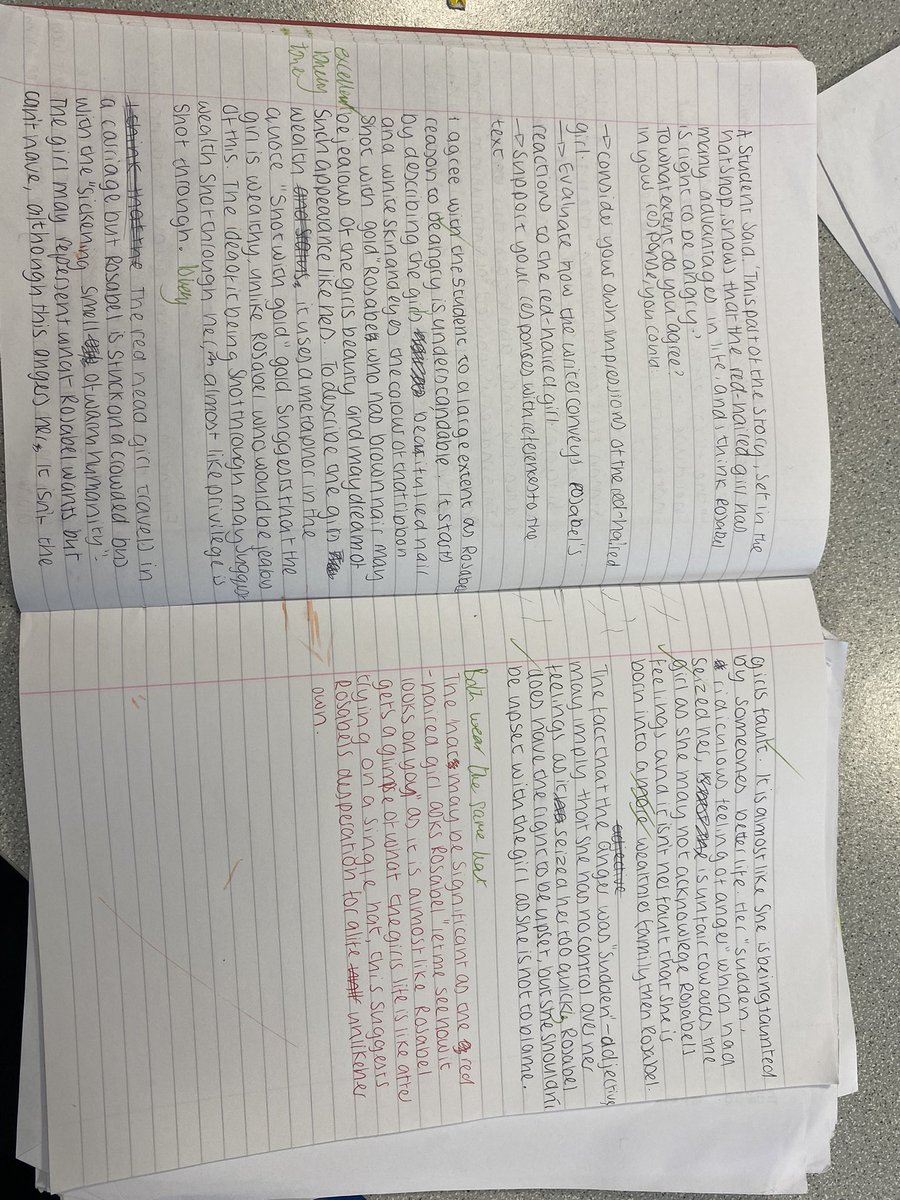 A Student said. "This part of the story, set in the
hat shop, shows that the red-haired girl has
many advantages in life. and i think Rosabel
is right to be angry."
To what extent do you agree?
In your response, you could
→ consider your own impressions of the red-haired
girl.
→ Evaluate how the writer conveys Rosabel's
reactions to the red-haired girl.
→ Support your responses with references to the
text.
I agree with the student to a large extent as Rosabel
reason to be angry is understandable. It starts
by describing the girls beautiful red hair
and white skin and eyes the colour of that ribbon
shot with gold" Rosabel who has brown hair may
be jealous of the girls beauty and may dream of
excellent
Such appearance like hers. To describe the girls
lovely
wealth, it uses a metaphor in the
tone
quote "Shot with gold" gold suggests that the
girl is wealthy, unlike Rosabel who would be jealous
of this. The idea of it being shot through may suggest
wealth shot through her, almost like privilege is
shot through. lovely
I think that the The red head girl travels in
a carriage but Rosabel is stuck on a crowded bus
with the "sickening smell of warm humanity".
The girl may represent what Rosabel wants but
cant have, although this angers her, it isn't the
girls fault. It is almost like she is being taunted
by someones better life. Her "sudden,
ridiculous feeling of anger" which had
seized her, is unfair towards the
girl as she may not acknowledge Rosabell
feelings and it isnt her fault that she is
born into a more wealthier family then Rosabel.
adjective
The fact that the anger was "Sudden"-adjective,
may imply that she has no control over her
feelings as it seized her too quickly Rosabel
does have the right to be upset, but she shouldn't
be upset with the girl as she is not to blame.
Both wear the same hat
The hat may be significant as the red
-haired girl asks Rosabel "let me see how it
looks on you" as it is almost like Rosabel
gets a glimpse of what the girls life is like after
trying on a single hat, this suggests
Rosabels desperation for a life unlike her
own.